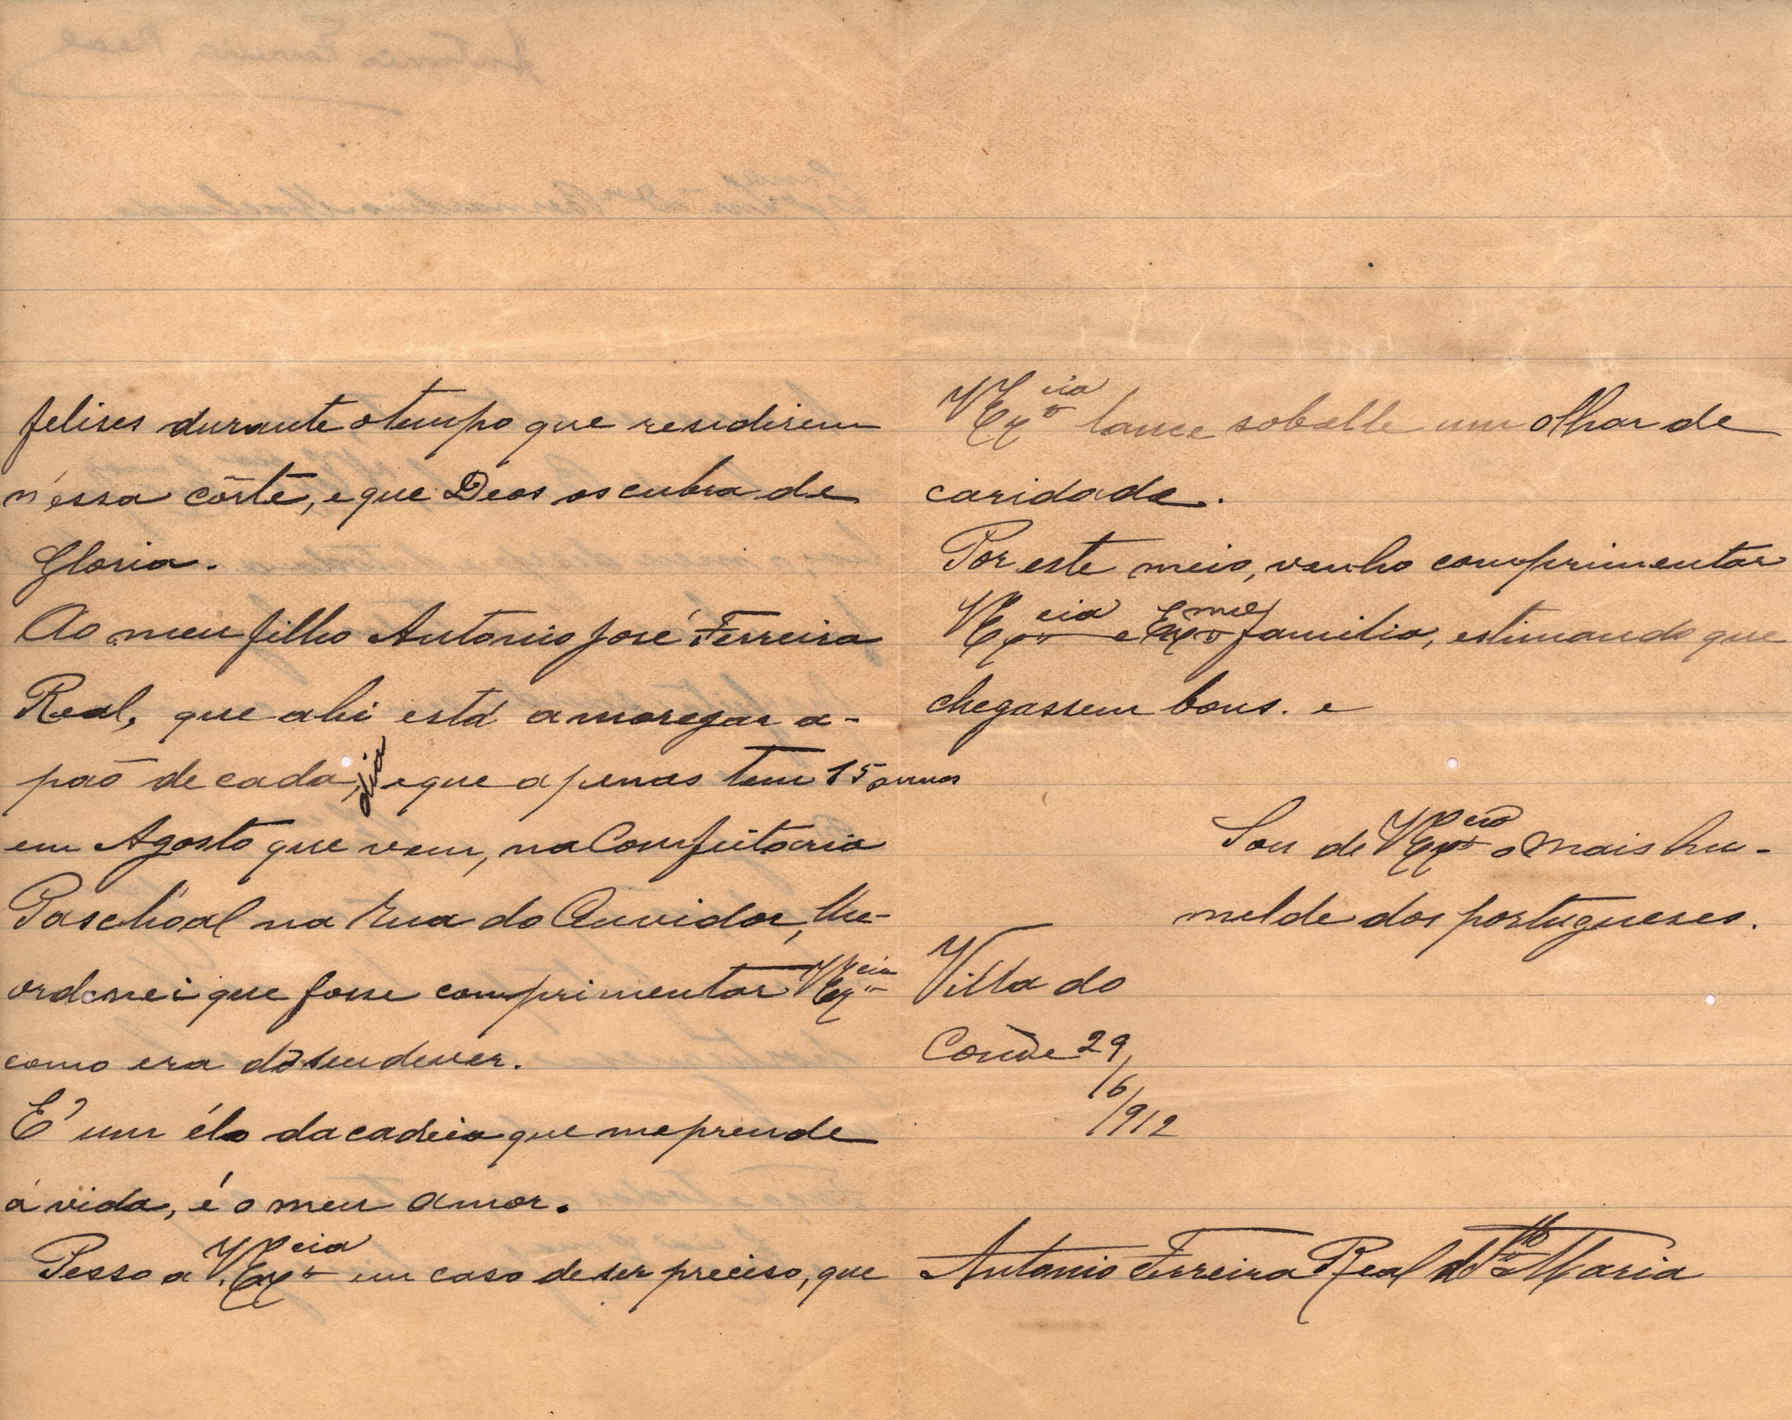 felises durante o tempo que residirem
n'essa côrte, e que Deos os cubra de
Gloria.
Ao meu filho Antonio José Ferreira
Real, que ahi está a moregar a-
paõ de cada dia, e que apenas tem 15 annos
em Agosto que vem, na Comfeitaria
Paschoal na rua do Ouvidor, lhe-
ordenei que fosse comprimentar VExcia
como era do seu dever.
E' um élo da cadeia que me prende
á vida, é o meu amor.
Pesso a V.Excia em caso de ser preciso, que
VExcia lance sobelle um olhar de
caridade.
Por este meio, venho comprimentar
VExcia e Exma familia, estimando que
chegassem bons. e
Sou de VExcia o mais hu-
milde dos portugueses.
Villa do
Conde 29/
/6/
/912
Antonio Ferreira Real de Sta Maria